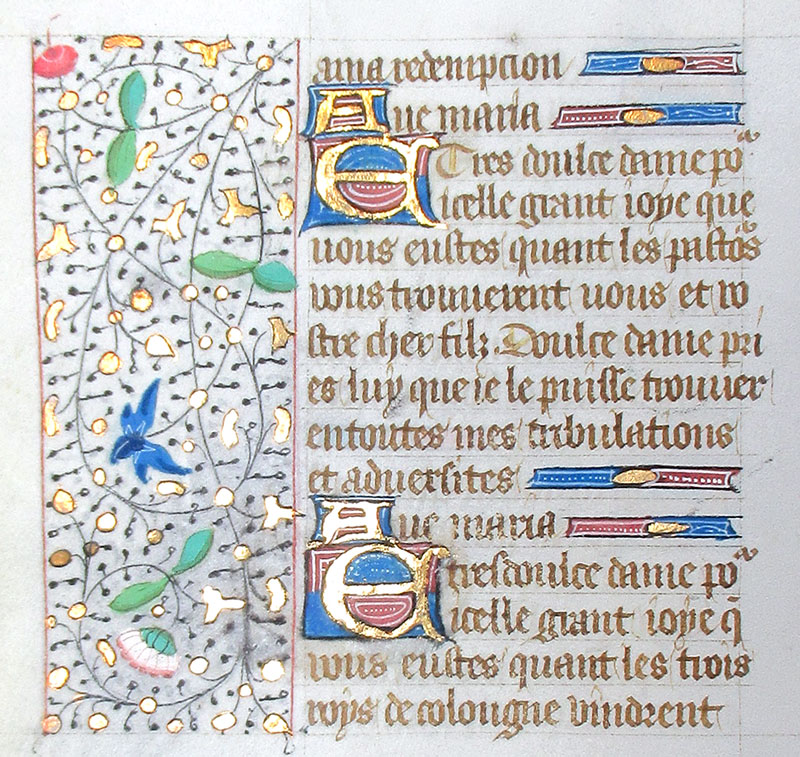 a ma redempcion
Aue maria
E Tres doulce dame po᷑
icelle grant ioye que
uous eustes quant les pasto᷑s
vous trouuerent uous et vo
stre cher filz. Doulce dame pri
es luy que ie le puisse trouuer
entoutes mes tribulations
et aduersites
Aue maria
E tresdoulce dame po᷑
icelle grant ioye q̄
vous eustes quant les trois
roys de coloungne vindrent